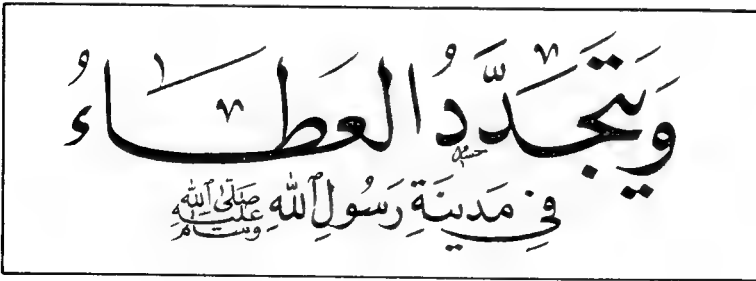 وَيَتَجَدَّدُ العَطَاءُ
في مَدينَةِ رَسُولِ اللهِ صَلَّى اللهُ عَلَيْهِ وَسَلَّم